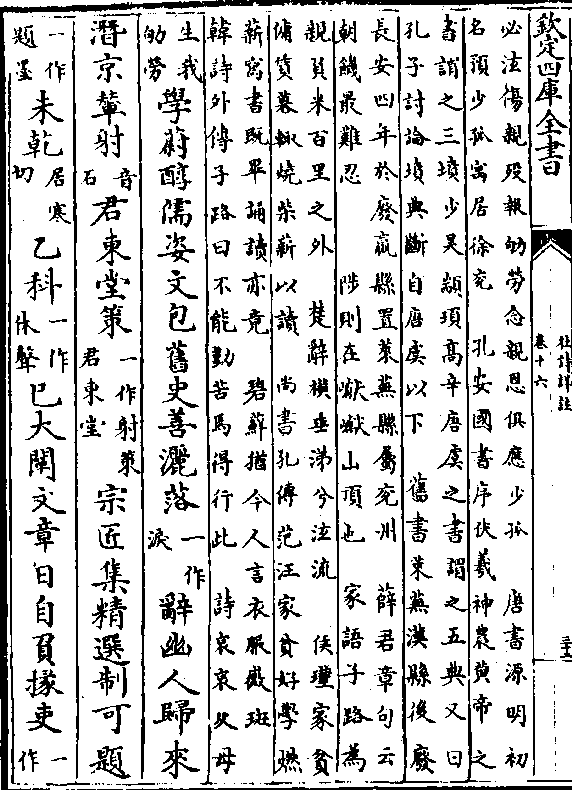 欽定四庫全書
杜詩詳註
卷十六
三十五
必法傷親歿報劬勞念親恩俱應少孤　唐書源明初
名預少孤寓居徐兖　孔安國書序伏羲神農黄帝之
書謂之三墳少昊顓頊髙辛唐虞之書謂之五典又曰
孔子討論墳典斷自唐虞以下　舊書萊蕪漢縣後廢
長安四年於廢嬴縣置萊蕪縣屬兖州　薛君章句云
朝饑最難忍　陟則在巘巘山頂也　家語子路為
親負米百里之外　楚辭横垂涕兮泣流　侯瑾家貧
傭賃暮輒燒柴薪以讀　尚書孔傳范汪家貧好學燃
薪寫書既畢誦讀亦竟　碧蘚猶今人言衣服黴斑
韓詩外傳子路曰不能勤苦焉得行此　詩哀哀父母
生我劬勞學蔚醇儒姿文包舊史善灑落一作涙辭幽人歸來
潛京輦射音石君東堂策一作射策君東堂宗匠集精選制可題
一作題墨未乾居寒切乙科一作休聲已大闡文章日自負掾吏一作